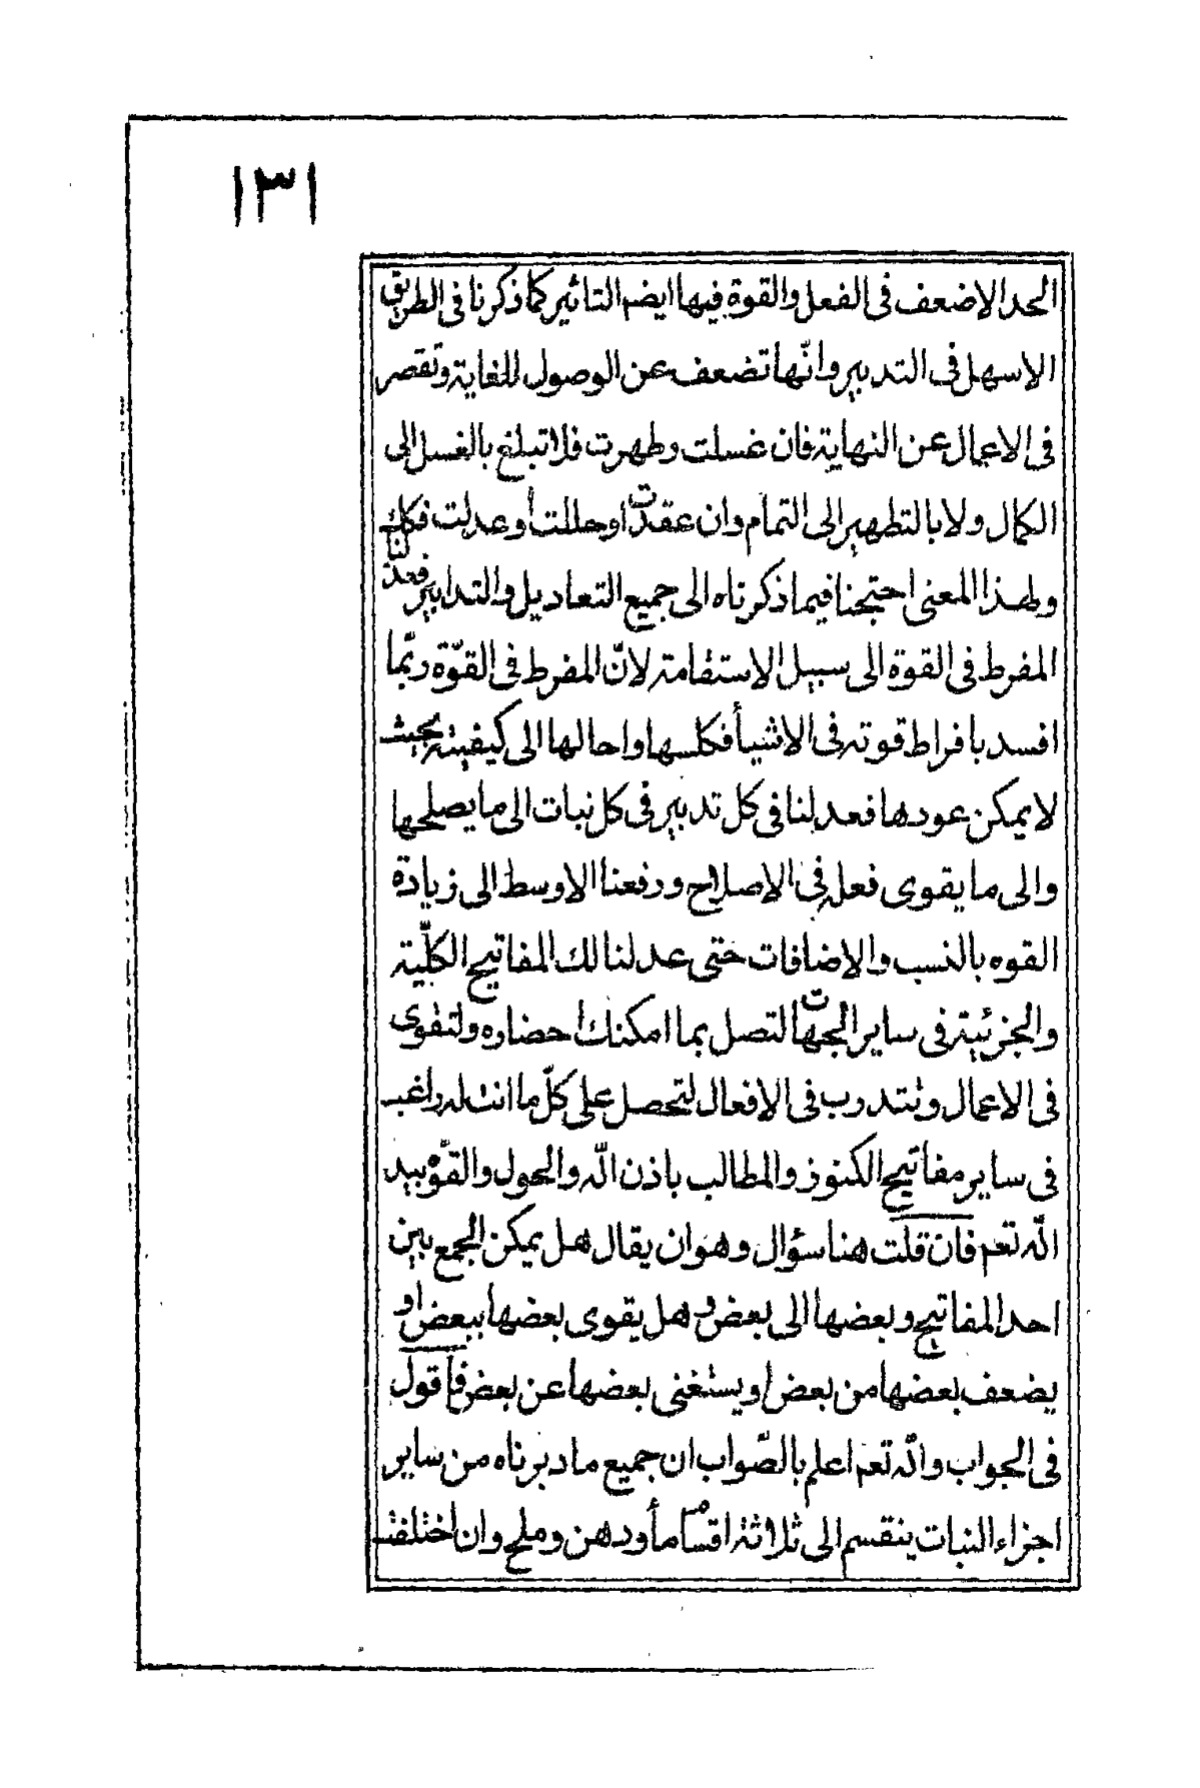 ١٣١
الحد الاضعف فى الفعل والقوة فيها ايضم التاثير كما ذكرنا فى الطريق
الاسهل فى التدبير وانّها تضعف عن الوصول للغاية وتقصر
فى الاعمال عن النهاية فان غسلت وطهرت فلا تبلغ بالغسل الى
الكمال ولا بالتطهير الى التمام وان عقدت اوحللت أوعدلت فكك
ولهذا المعنى احتجنا فيما ذكرناه الى جميع التعاديل والتدابير فعدلنا
المفرط فى القوة الى سبيل الاستقامة لانّ المفرط فى القوّة ربّما
افسد بافراط قوته فى الاشيأ فكلسها واحالها الى كيفيته بحيث
لا يمكن عودها فعدلنا فى كل تدبير فى كل نبات الى ما يصلحها
والى ما يقوى فعله فى الاصلاح ورفعنا الاوسط الى زيادة
القوه بالنسب والاضافات حتى عدلنا لك المفاتيح الكلّية
والجزئية فى ساير الجهات لتصل بما امكنك احضاره ولتقوى
فى الاعمال وتتدرب فى الافعال لتحصل على كلّ ما انت له راغب
فى ساير مفاتيح الكنوز والمطالب باذن الله والحول والقوّة بيد
الله تعم فان قلت هنا سؤال وهو ان يقال هل يمكن الجمع بين
احد المفاتيح وبعضها الى بعض وهل يقوى بعضها ببعض او
يضعف بعضها من بعض او يستغنى بعضها عن بعض فأقول
فى الجواب والله تعم اعلم بالصّواب ان جميع ما دبرناه من ساير
اجزاء النبات ينقسم الى ثلاثة اقسام مأ ودهن وملح وان اختلفت